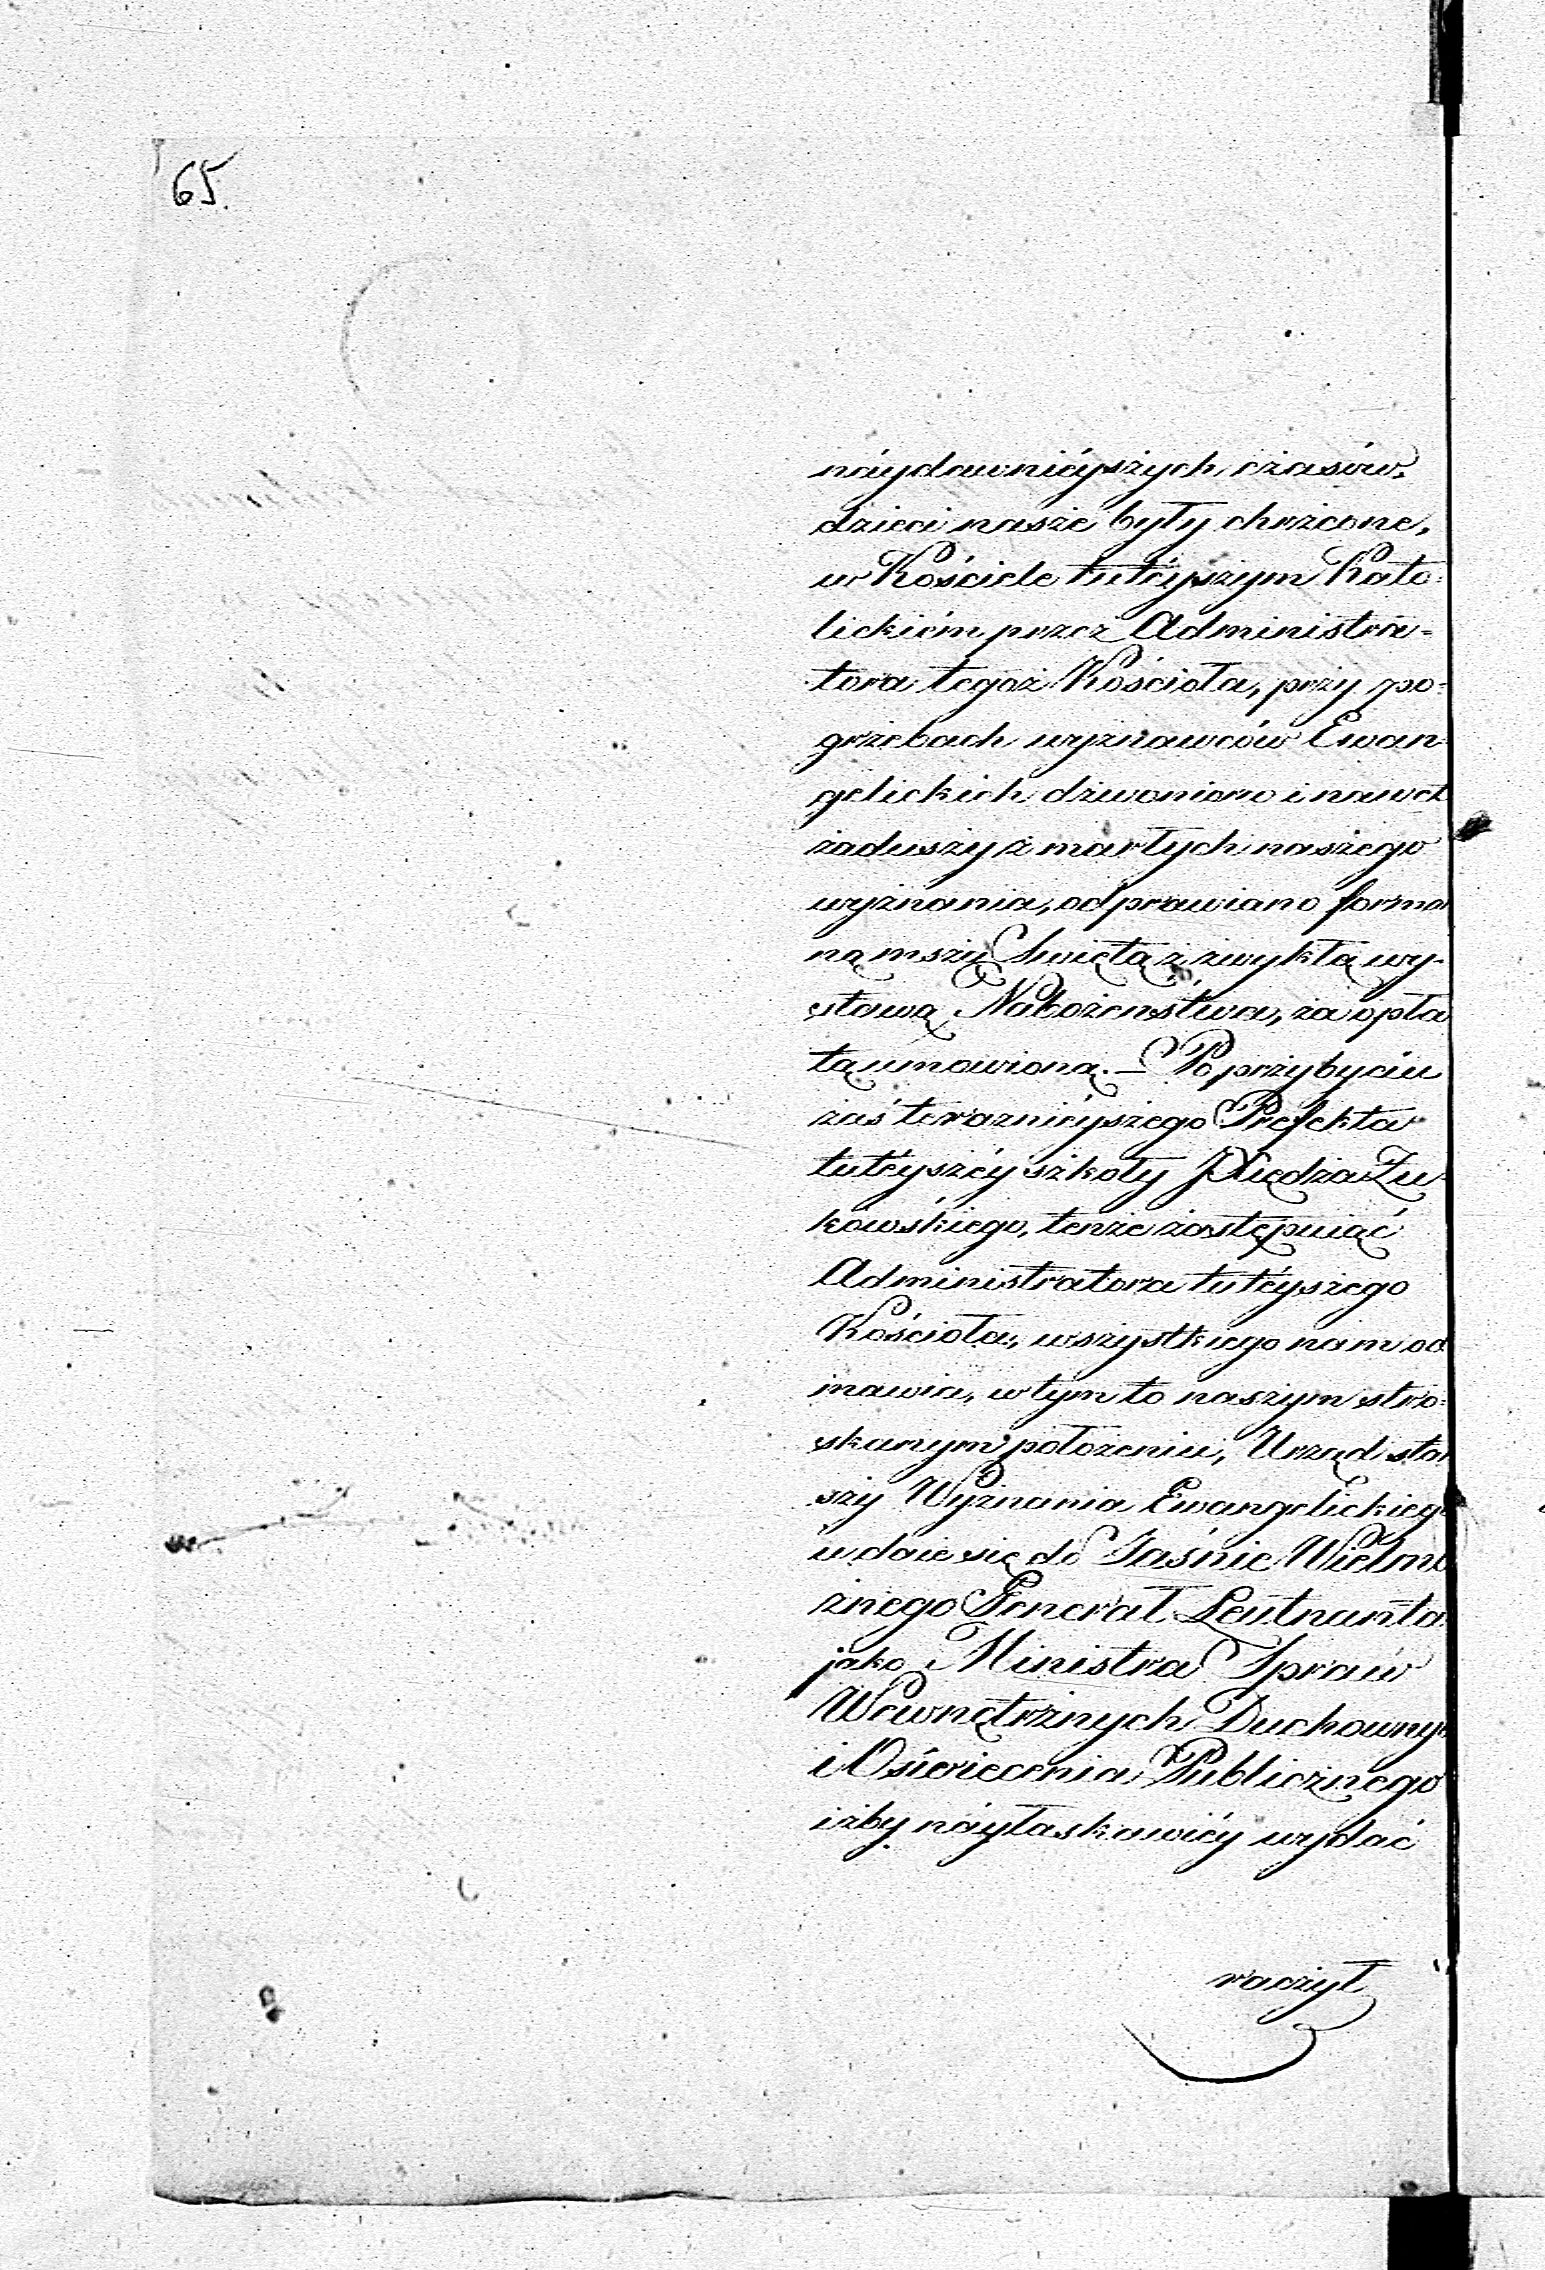 65.
náydawniéyszych czasów.
dzieci nasze były chrzcone,
w Kościele tuteyszym Kato-
lickiém przez Administra-
tora tegoż Kościoła, przy po-
grzebach wyznawców Ewan
gelickich dzwoniono i nawet
zaduszy zmarłych naszego
wyznania, odprawiano formal
ną mszę Swiętą z zwykłą wy-
stawą Nabożeństwa, za opła
tą umowioną. – Po przybyciu
zaś teraznieyszego Prefekta
tutéyszéy szkoły JXiędza Żu-
kowskiego, tenże zastępuiąć
Administratora tutéyszego
Kościoła, wszystkiego nam od
mawia, w tym to naszym stro-
skanym położeniu, Urząd star
szy Wyznania Ewangelickiego
udaie się do Jaśnie Wielmo
żnego Generał Leutnanta
jako Ministra Spraw
Wewnętrznych Duchownych
i Oświecenia Publicznego
iżby náyłaskawiéy wydać
raczył